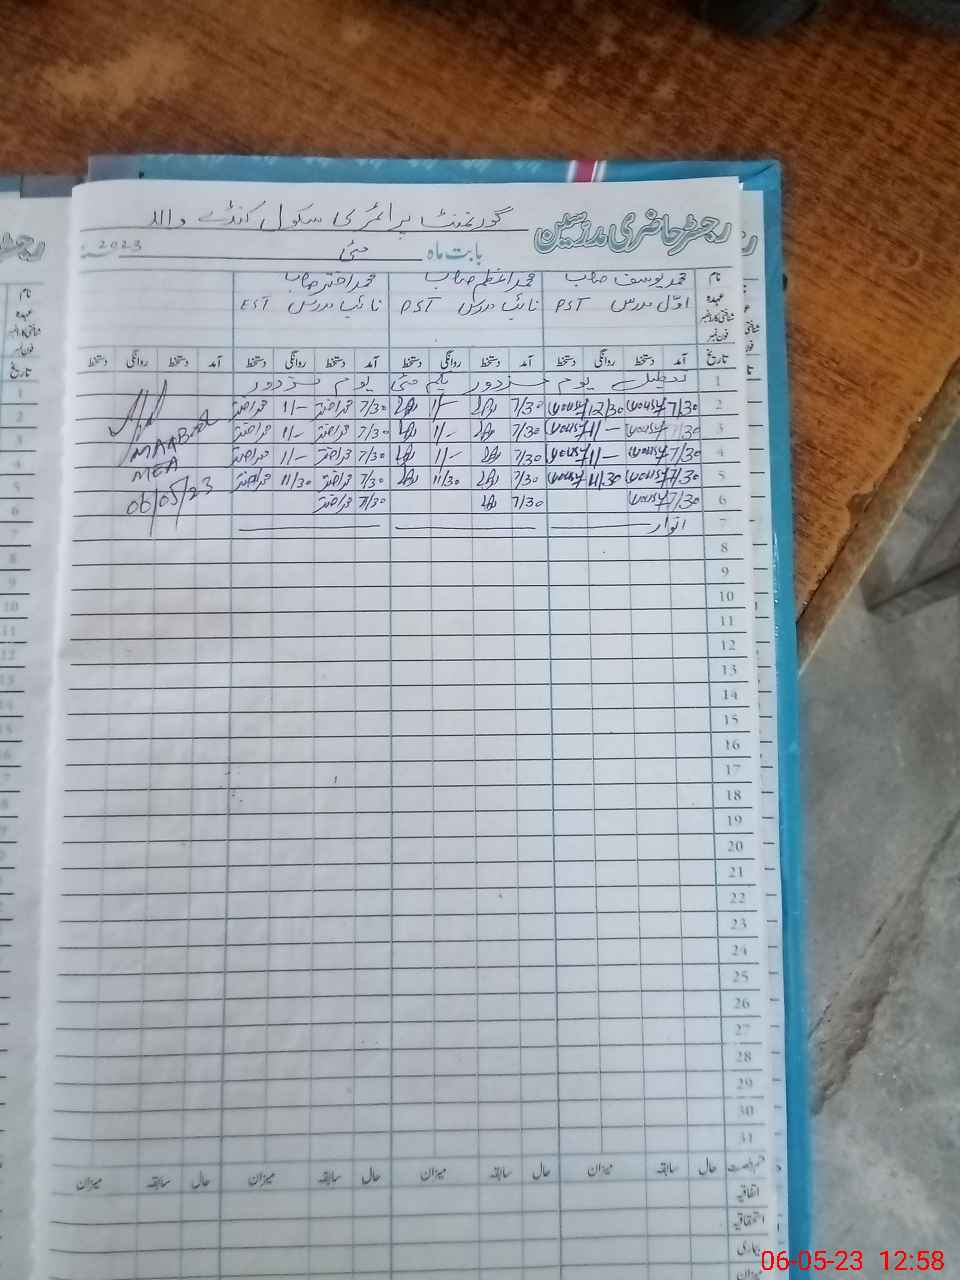 رجسٹر حاضری مدرسین گورنمنٹ پرائمری سکول کنڈے والا
بابت ماہ مئی 2023
نام محمد یوسف صاحب محمد اعظم صاحب محمد اختر صاحب
عہدہ اوّل مدرس PST نائب مدرس PST نائب مدرس EST
شناختی کارڈ نمبر
فون نمبر
تاریخ آمد دستخط روانگی دستخط آمد دستخط روانگی دستخط آمد دستخط روانگی دستخط آمد دستخط روانگی دستخط
1 تعطیل یوم مزدور یکم مئی یوم مزدور
2 7/30 Yousaf 12/30 Yousaf 7/30 1/- 7/30 محمد اختر 1/- محمد اختر
3 7/30 Yousaf 1/- Yousaf 7/30 1/- 7/30 محمد اختر 1/- محمد اختر
4 7/30 Yousaf 1/- Yousaf 7/30 1/- 7/30 محمد اختر 1/- محمد اختر
5 7/30 Yousaf 11/30 Yousaf 7/30 11/30 7/30 محمد اختر 11/30 محمد اختر
6 7/30 Yousaf 7/30 7/30 محمد اختر
7 اتوار
MEA
06/05/23
8
9
10
11
12
13
14
15
16
17
18
19
20
21
22
23
24
25
26
27
28
29
30
31
قسم رخصت حال سابقہ میزان حال سابقہ میزان حال سابقہ میزان حال سابقہ میزان
اتفاقیہ
استحقاقیہ
بیماری
میزان
06-05-23 12:58